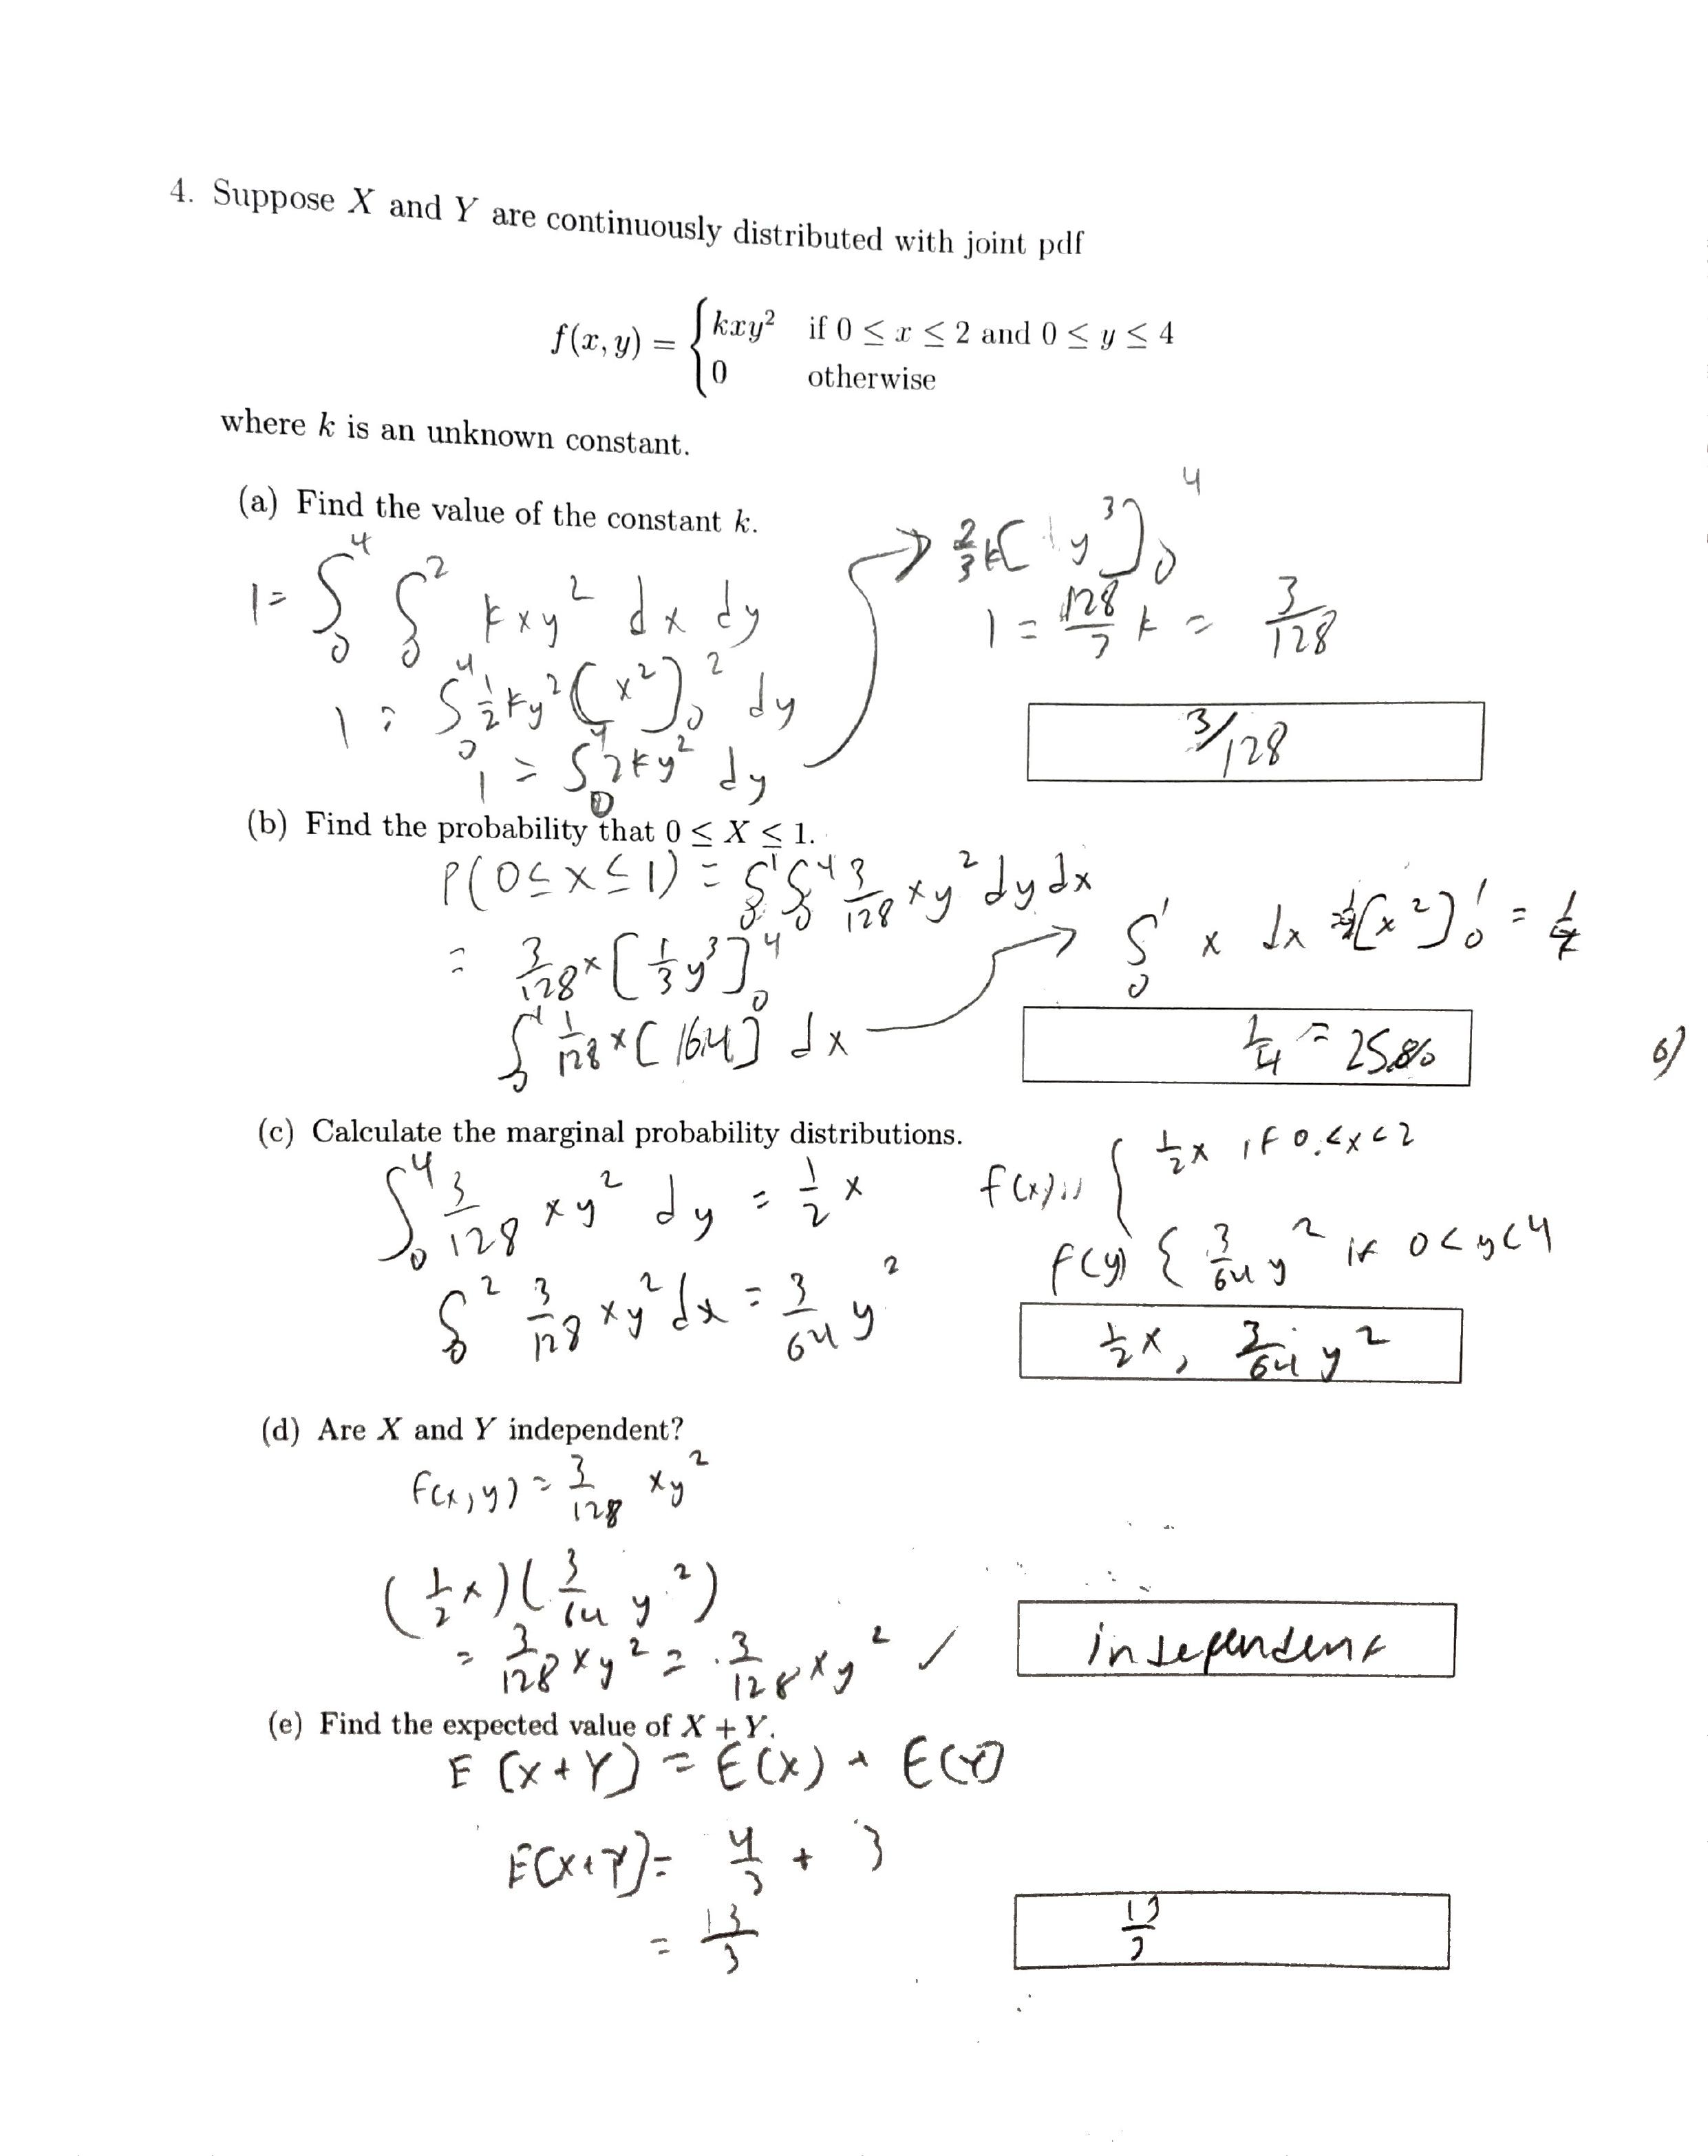 4. Suppose X and Y are continuously distributed with joint pdf
f(x, y) = { kxy² if 0 ≤ x ≤ 2 and 0 ≤ y ≤ 4
0 otherwise
where k is an unknown constant.
(a) Find the value of the constant k.
1 = ∫₀⁴ ∫₀² kxy² dx dy
1 = ∫₀⁴ ½ky² [x²]₀² dy
1 = ∫₀⁴ 2ky² dy
→ ⅔k[y³]₀⁴
1 = 128/3 k = 3/128
3/128
(b) Find the probability that 0 ≤ X ≤ 1.
P(0 ≤ x ≤ 1) = ∫₀¹ ∫₀⁴ 3/128 xy² dy dx
= 3/128 x [⅓y³]₀⁴
∫₀¹ 1/128 x [64] dx
→ ∫₀¹ x dx = ½[x²]₀¹ =
1/4 = 25%
6)
(c) Calculate the marginal probability distributions.
∫₀⁴ 3/128 xy² dy = ½ x
∫₀² 3/128 xy² dx = 3/64 y²
f(x) = { ½x if 0 < x < 2
f(y) { 3/64 y² if 0 < y < 4
½x, 3/64 y²
(d) Are X and Y independent?
f(x, y) = 3/128 xy²
(½x)(3/64 y²)
= 3/128 xy² = 3/128 xy² ✓
independent
(e) Find the expected value of X + Y.
E(X + Y) = E(X) + E(Y)
E(X + Y) = 4/3 + 3
= 13/3
13/3